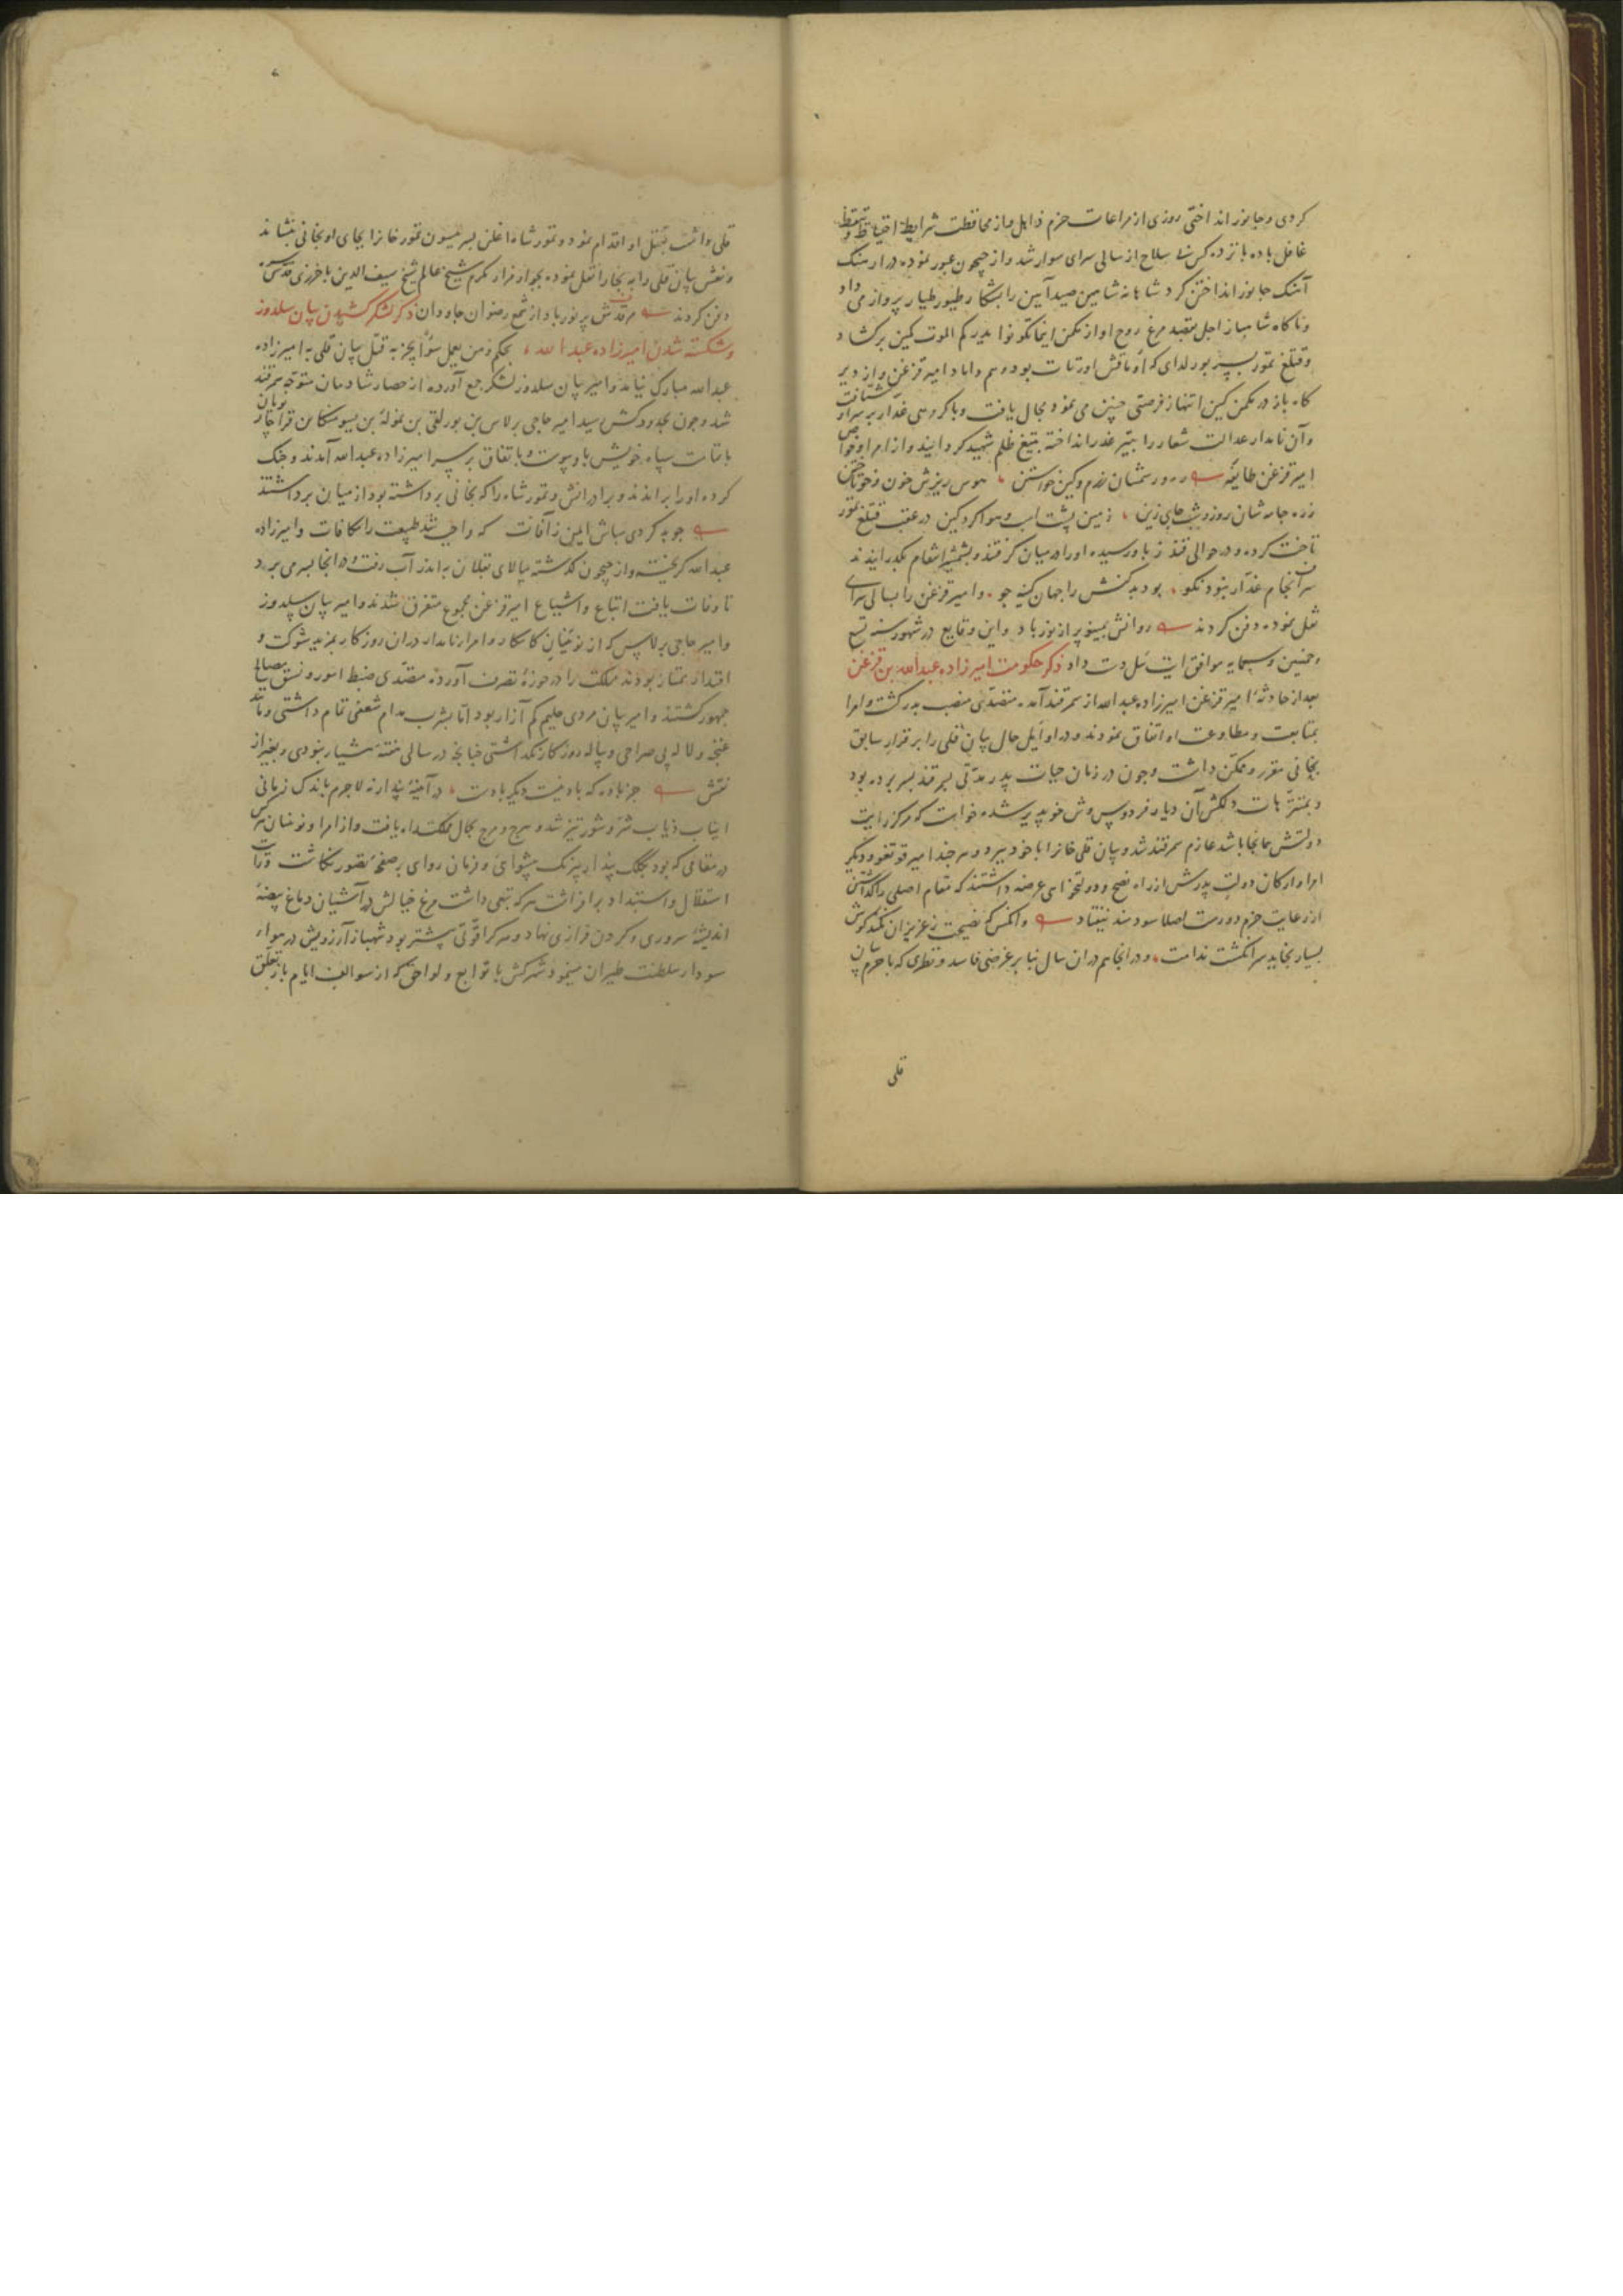 کردی و جانور انداختی روزی از مراعات حزم ذاهل و از محافظت شرایط احتیاط و تیقظ
غافل با ده پانزده کس بی سلاح از سالی سرای سوار شد و از جیحون عبور نموده در ارهنگ
آهنک جانور انداختن کرد شاهانه شاهین صید آیین را بشکار طیور طیار پرواز می داد
و ناکاه شاهباز اجل بقصد مرغ روح او از مکمن اینما تکونوا یدرککم الموت کمین برکشاد
و قتلغ تمور پسر بورلدای که از اورتات بود و هم داماد امیر قزغن و از دیر
کاه باز در مکمن کین انتهاز فرصتی چنین می نمود مجال یافت و با کروهی غدار بر سر او شتافت
و آن نامدار عدالت شعار را بتیر غدر انداخته بتیغ ظلم شهید کردانیدند و از امرا و خواص
امیر قزغن طایفه همه در سرشان رزم و کین خواستن هوس ریزش خون و خون تاختن
زده جامه شان روز و شب جای زین زمین پشت اسب و هوا کرد کین در عقب قتلغ تمور
تاخت کردند و در حوالی قندز باو رسیده او را در میان کرفتند و بشمشیر انتقام بکذرانیدند
سرانجام غدار نبود نکو بود بدکنش را جهان کینه جو و امیر قزغن را بسالی سرای
نقل نموده دفن کردند روانش بمینو پر از نور باد و این وقایع در شهور سنه تسع
و خمسین و سبعمایه موافق ایت ئیل دست داد ذکر حکومت امیرزاده عبد الله بن قزغن
بعد از حادثهٔ امیر قزغن امیرزاده عبد الله از سمرقند آمده متصدی منصب پدر کشت و امرا
بمتابعت و مطاوعت او اتفاق نمودند و در اوایل حال بیان قلی را بر قرار سابق
بخانی مقرر و ممکن داشت و چون در زمان حیات پدر مدتی بسمرقند بسر برده بود
و بمتنزهات دلکش آن دیار فردوس وش خو پذیر شده خواست که مرکز رایت
دولتش همانجا باشد عازم سمرقند شد و بیان قلی خانرا با خود ببرد و هر چند امیر قوتقو و دیکر
امرا و ارکان دولت پدرش از راه نصح و دولتخواهی عرضه داشتند که مقام اصلی را کذاشتن
از رعایت حزم دورست اصلا سودمند نیفتاد وانکس که نصیحت ز عزیزان نکند کوش
بسیار بخاید سر انکشت ندامت و در انجا هم در ان سال بنا بر غرضی فاسد و نظری که با حرم بیان
قلی
قلی داشت بقتل او اقدام نمود و تمور شاه اغلن پسر ییسون تمور خانرا بجای او بخانی بنشاند
و نعش بیان قلی را به بخارا نقل نموده بجوار مزار مکرم شیخ عالم شیخ سیف الدین باخرزی قدس سره
دفن کردند مرقدش پر نور باد از شمع رضوان جاودان ذکر لشکر کشیدن بیان سلدوز
و شکسته شدن امیرزاده عبد الله بحکم و من یعمل سوءا یجز به قتل بیان قلی به امیرزاده
عبد الله مبارک نیامد و امیر بیان سلدوز لشکر جمع آورده از حصار شادمان متوجه سمرقند
شد و چون بحدود کش رسید امیر حاجی برلاس بن بورلغی بن نموله بن ییسومنکا بن قراچار نویان
با تمامت سپاه خویش باو پیوست و باتفاق بر سر امیرزاده عبد الله آمدند و جنک
کرده او را براندند و برادرانش و تمور شاه را که بخانی برداشته بود از میان برداشتند
چو بد کردی مباش ایمن ز آفات که واجب شد طبیعت را مکافات و امیرزاده
عبد الله کریخته و از جیحون کذشته ببالای بقلان به اندر آب رفت و در انجا بسر می برد
تا وفات یافت اتباع و اشیاع امیر قزغن مجموع متفرق شدند و امیر بیان سلدوز
و امیر حاجی برلاس که از نویینان کامکار و امرا نامدار دران روزکار بمزید شوکت و
اقتدار ممتاز بودند مملکت را در حوزهٔ تصرف آورده متصدی ضبط امور و نسق مصالح
جمهور کشتند و امیر بیان مردی حلیم کم آزار بود اما بشرب مدام شعفی تمام داشتی و مانند
غنچه و لاله بی صراحی و پیاله روزکار نکذاشتی چنانچه در سالی هفتهٔ هشیار نبودی و بغیر از
نقش جز باده که باد نیست دیکر بادست در آینهٔ پندار نه لاجرم باندک زمانی
انیاب ذیاب شر و شور تیز شد و هرج و مرج بحال مملکت راه یافت و از امرا و نوینان هر کس
در مقامی که بود بکلک پندار نیرنک پیشوایی و فرمان روایی بر صفحهٔ تصور نکاشت و رایت
استقلال و استبداد برافراشت هر که تبعی داشت مرغ خیالش در آشیان دماغ بیضهٔ
اندیشهٔ سروری و کردن فرازی نهاد و هر کرا قوتی بیشتر بود شهباز آرزویش در هواء
سودا سلطنت طیران مینمود هر کس با توابع و لواحق که از سوالف ایام باز تعلق